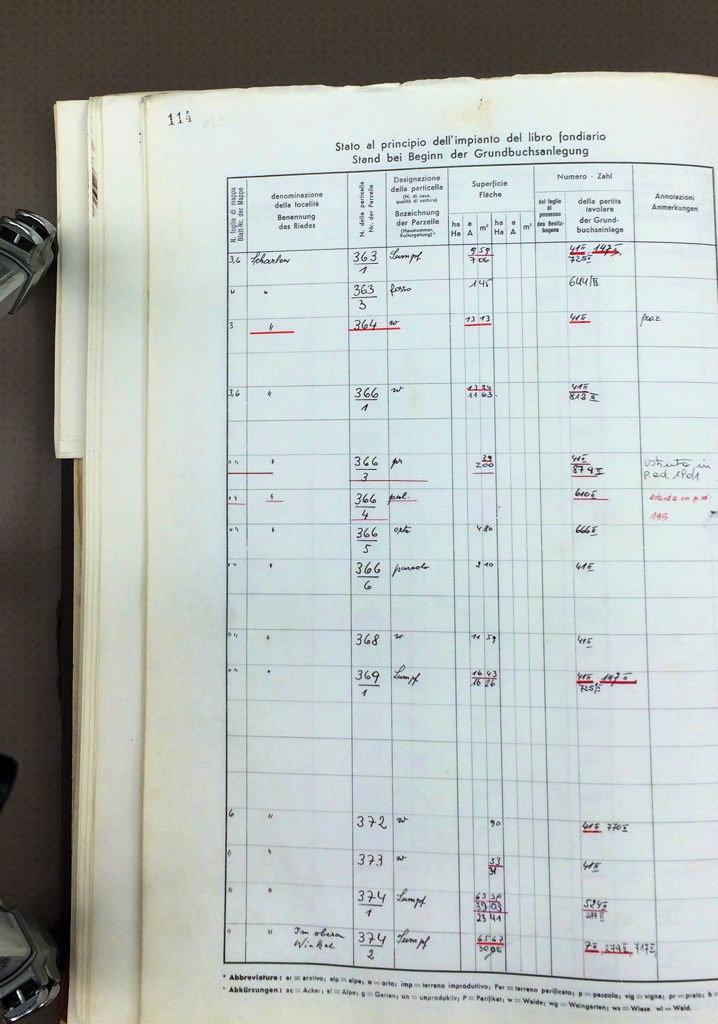 114
Stato al principio dell'impianto del libro fondiario
Stand bei Beginn der Grundbuchsanlegung
N. foglio di mappa
Blatt-Nr. der Mappe
denominazione
della località
Benennung
des Riedes
N. della particella
Nr. der Parzelle
Designazione
della particella
(N. di casa,
qualità di coltura)
Bezeichnung
der Parzelle
(Hausnummer,
Kulturgattung)*
Superficie
Fläche
ha
Ha
a
A
m²
ha
Ha
a
A
m²
Numero - Zahl
del foglio
di
possesso
des Besitz-
bogens
della partita
tavolare
der Grund-
buchseinlage
Annotazioni
Anmerkungen
3,6 363/1 Sumpf 9 59
7 06 41II, 147II,
725II
" " 363/3 fosso 1 45 644/II
3 " 364 w 13 13 41II
3,6 " 366/1 w 12 24
11 63 41II
813 II
" " 366/3 pr 39
200 41II
874 II
" " 366/4 610II
195
" " 366/5 orto 4 80 666II
" " 366/6 pascolo 2 10 41II
" " 368 w 11 59 41II
" " 369/1 Sumpf 16 43
16 26 41II, 147II
725/II
6 " 372 w 90 41II 770II
" " 373 w 53
31 41II
" " 374/1 Sumpf 63 30
39 03
23 41 524II
" " Im oberen
Winkel 374/2 Sumpf 65 67 7II, 279II 717II
* Abbreviature: ar = arativo; alp = alpe; o = orto; imp = terreno improduttivo; Par = terreno parificato; p = pascolo; vig = vigna; pr = prato; b =
* Abkürzungen: ac = Acker; al = Alpe; g = Garten; un = unproduktiv; P = Parifikat; w = Weide; wg = Weingarten; ws = Wiese wl = Wald.